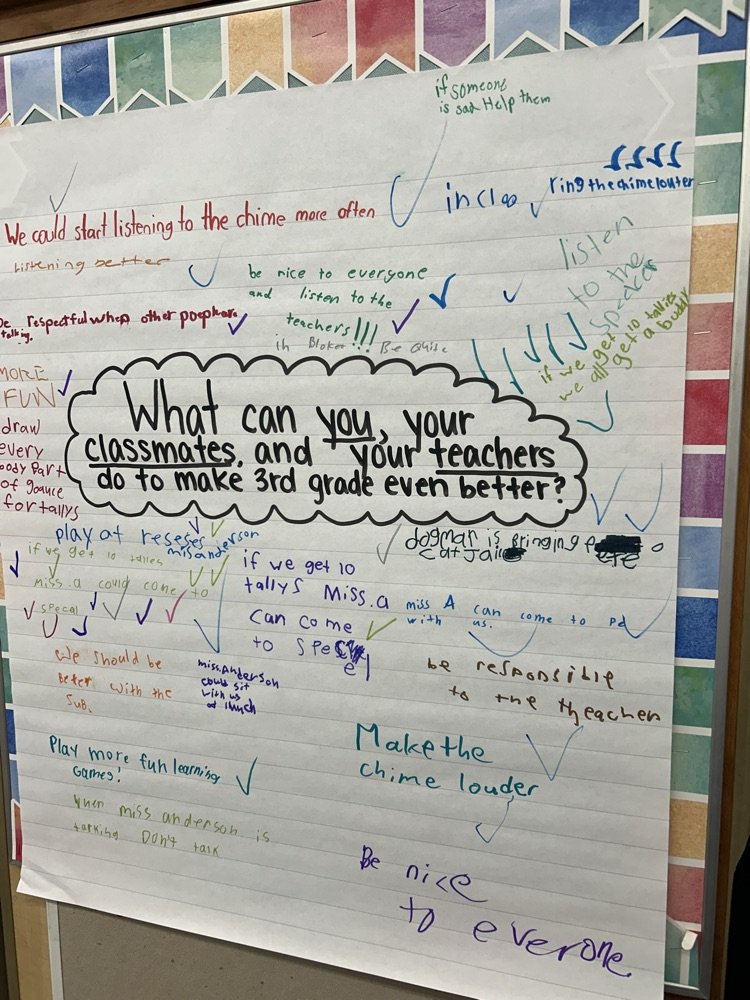 if someone
is sad Help them
ring the chime louter
in clas
We could start listening to the chime more often
Listening better
listen
to the
Speacer
be nice to everyone
and listen to the
teachers!!!
be respectful when other poeple are
talking.
Be Quite
if we get 10 tallies
we all get a buddy
MORE
FUN
draw
every
body part
of
for tallys
What can you, your
classmates, and your teachers
do to make 3rd grade even better?
play at reseses
misanderson
if we get 10 tallies
miss.a could come to
specal
if we get 10
tallys Miss.a
can come
to
dogmar is Bringing
miss A can come to pe
with us.
We should be
beter with the
sub.
miss.Anderson
could sit
with us
at lunch
be responsible
to the theacher
Play more fun learning
Games!
Make the
chime louder
when miss anderson is
talking Don't talk
Be nice
to everone